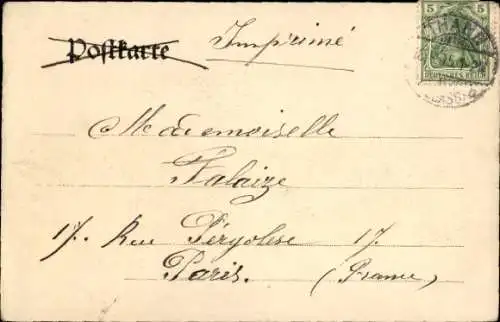 Postkarte
Imprimé
5 5
DEUTSCHES REICH
Mademoiselle
Falaize
17. Rue Pérgolese 17.
Paris. (France)